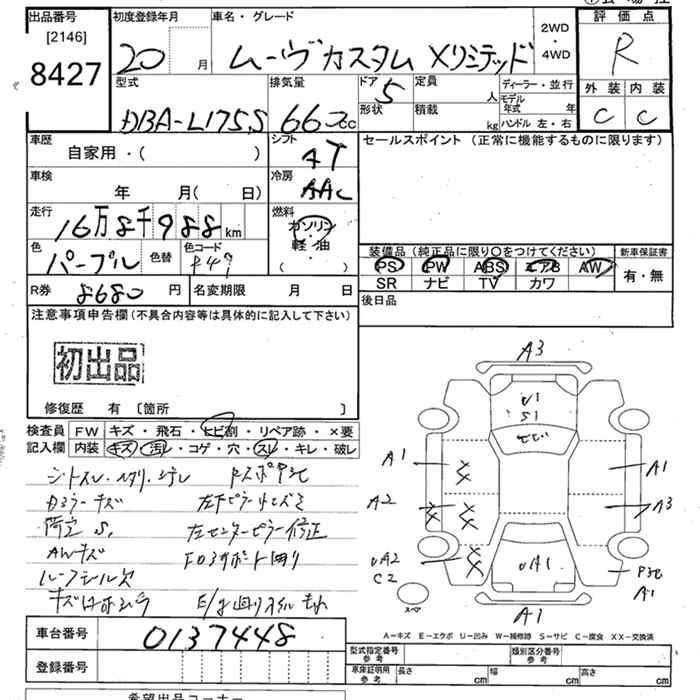 出品番号
[2146]
8427
初度登録年月
20 月
車名・グレード
ムーヴカスタム Xリミテッド
2WD
4WD
評価点
R
外装 内装
C C
型式
DBA-L175S
排気量
660cc
ドア
5
定員
人
ディーラー・並行
形状
積載
kg
モデル年式 年
ハンドル 左・右
車歴
自家用・( )
シフト
AT
セールスポイント(正常に機能するものに限ります)
車検
年 月( 日)
冷房
AAC
走行
16万8千988km
燃料
ガソリン
軽・油
( )
色
パープル
色替
色コード
装備品(純正品に限り○をつけてください)
PS PW ABS エアB AW
SR ナビ TV カワ
新車保証書
有・無
R券
8680円
名変期限 月 日
後日品
注意事項申告欄(不具合内容等は具体的に記入して下さい)
初出品
修復歴 有 〔箇所 〕
検査員記入欄
FW キズ・飛石・ヒビ割・リペア跡・×要
内装 キズ・汚レ・コゲ・穴・スレ・キレ・破レ
AWキズ
左センターピラー修正
A3
U1
S1
A1
A2
UA2
C2
UA1
A1
A3
A1
A1
スペア
A-キズ E-エクボ U-凹み W-補修跡 S-サビ C-腐食 XX-交換済
車台番号
0137448
登録番号
型式指定番号
参考
類別区分番号
参考
車庫証明用
参考
長さ cm
幅 cm
高さ cm
希望出品コーナー